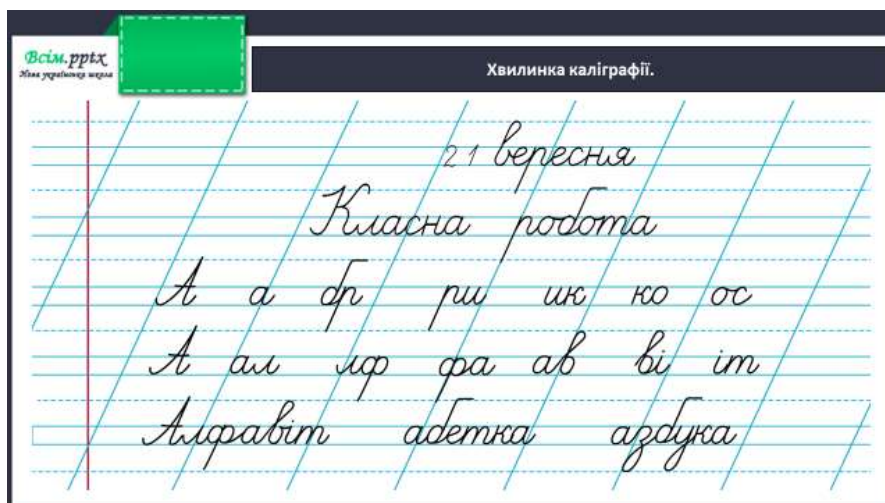 Всім.pptx
Нова українська школа
Хвилинка каліграфії.
21 вересня
Класна робота
А а бр ри ик ко ос
А ал лф фа ав ві іт
Алфавіт абетка азбука